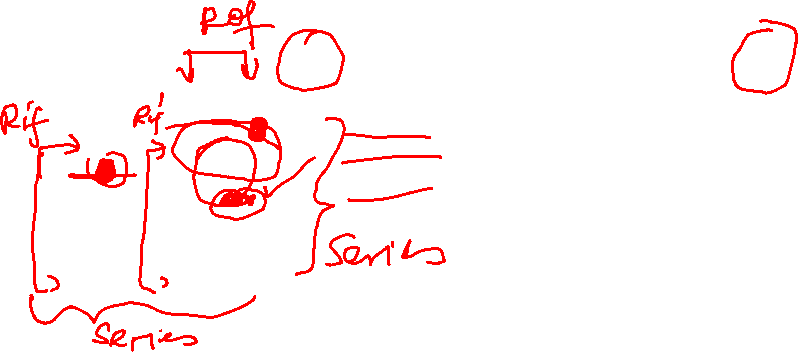 Rof
Rif
Rif'
series
series